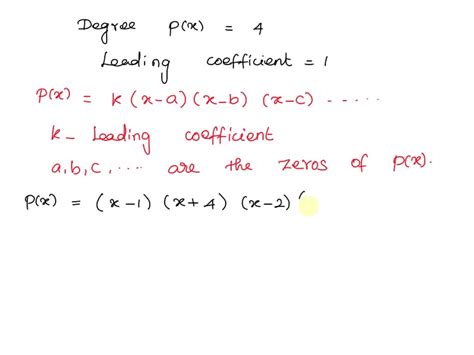 Degree P(x) = 4
Leading coefficient = 1
P(x) = k (x-a) (x-b) (x-c) -----
k - Leading coefficient
a, b, c, .... are the zeros of P(x).
P(x) = (x-1) (x+4) (x-2) (